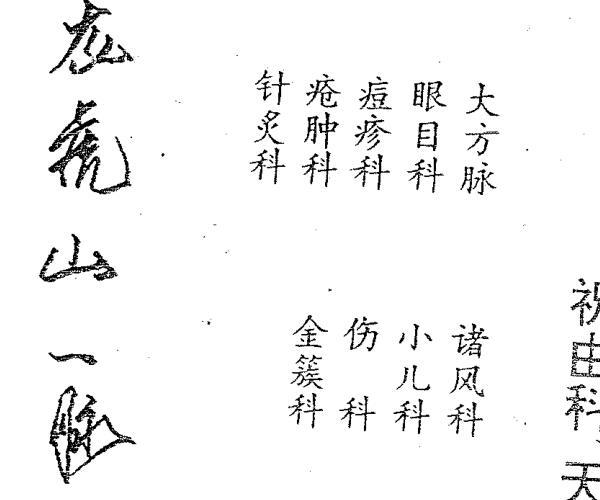 祝由科、天
大方脉
眼目科
痘疹科
疮肿科
针灸科
诸风科
小儿科
伤科
金簇科
龙虎山一脉